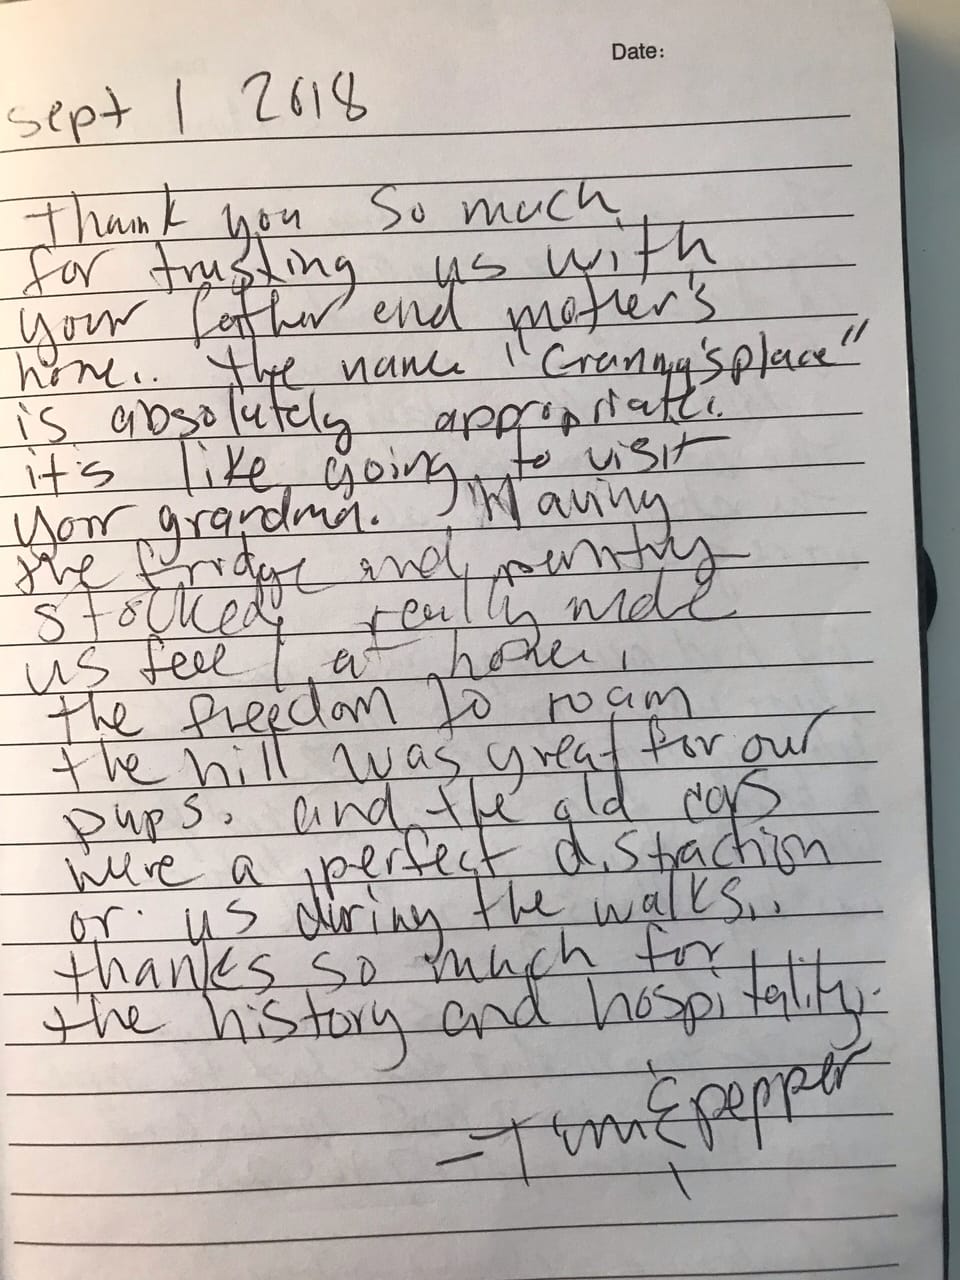 Date:
sept 1 2018
thank you so much
for trusting us with
your father and mother's
home.. the name "Granny's place"
is absolutely appropriate.
it's like going to visit
your grandma. Having
the fridge and pantry
stocked really made
us feel at home.
the freedom to roam
the hill was great for our
pups. and the old cars
were a perfect distraction
or us during the walks..
thanks so much for
the history and hospitality.
- Tim & pepper